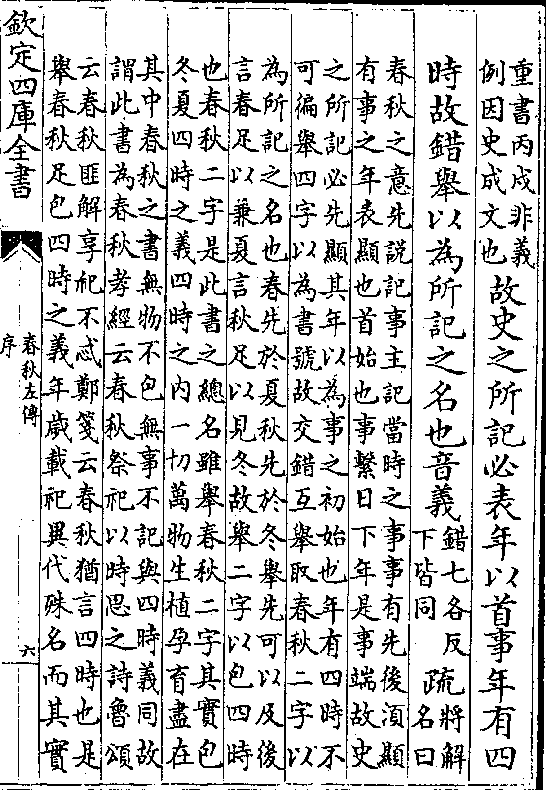 重書丙戍非義
例因史成文也
故史之所記必表年以首事年有四
時故錯舉以為所記之名也音義
錯七各反
下皆同
疏
將解
名曰
春秋之意先說記事主記當時之事事有先後湏顯
有事之年表顯也首始也事繫日下年是事端故史
之所記必先顯其年以為事之初始也年有四時不
可徧舉四字以為書號故交錯互舉取春秋二字以
為所記之名也春先於夏秋先於冬舉先可以及後
言春足以兼夏言秋足以見冬故舉二字以包四時
也春秋二字是此書之總名雖舉春秋二字其實包
冬夏四時之義四時之内一切萬物生植孕育盡在
其中春秋之書無物不包無事不記與四時義同故
謂此書為春秋孝經云春秋祭祀以時思之詩魯頌
云春秋匪解享祀不忒鄭箋云春秋猶言四時也是
舉春秋足包四時之義年歲載祀異代殊名而其實
欽定四庫全書
春秋左傳
序
六